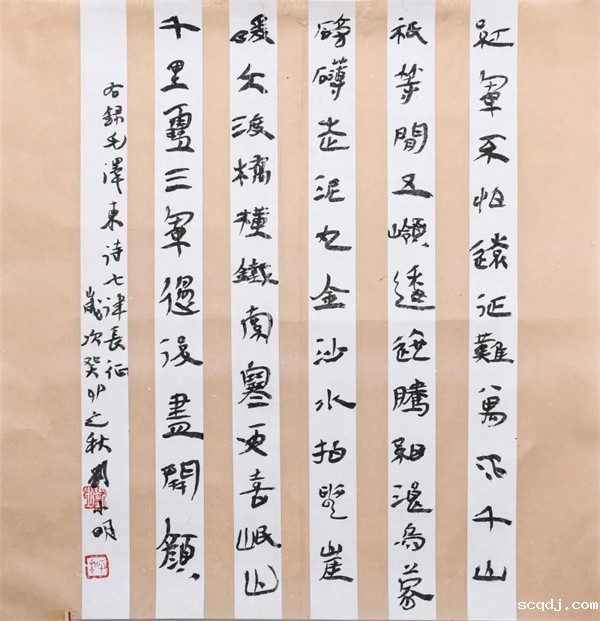 紅軍不怕遠征難萬水千山
祇等閒五嶺逶迤騰細浪烏蒙
磅礴走泥丸金沙水拍雲崖
暖大渡橋橫鐵索寒更喜岷山
千里雪三軍過後盡開顏
右録毛澤東诗七律長征
歲次癸卯之秋劉明
scqdj.com